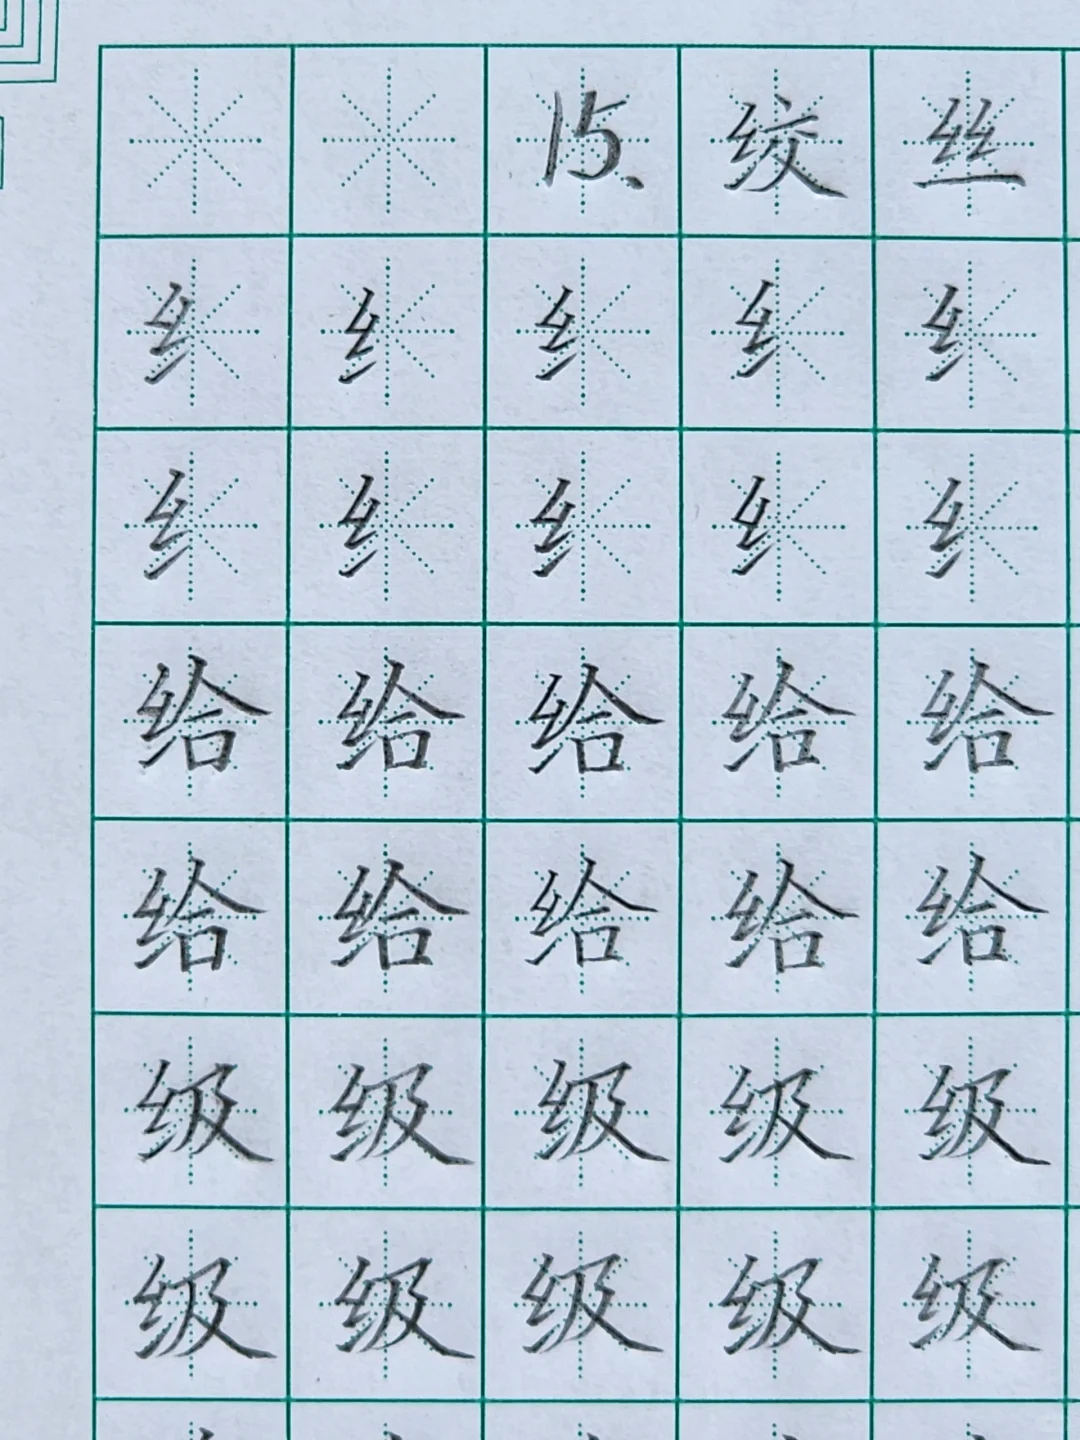 15. 绞丝
纟纟纟纟纟
纟纟纟纟纟
给给给给给
给给给给给
级级级级级
级级级级级